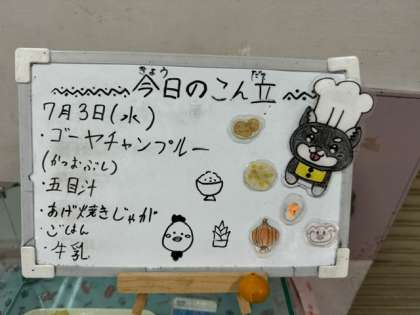 今日のこん立
きょう だて
7月3日(水)
・ゴーヤチャンプルー
(かつおぶし)
・五目汁
・あげ焼きじゃが
・ごはん
・牛乳